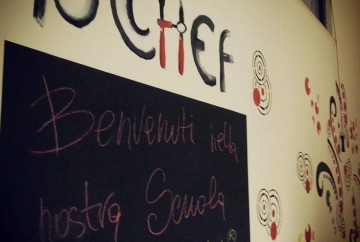 CHEF
Benvenuti nella
nostra Scuola